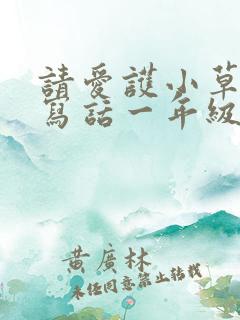 請愛護小草
寫話一年級
黃廣林
未經同意禁止轉載